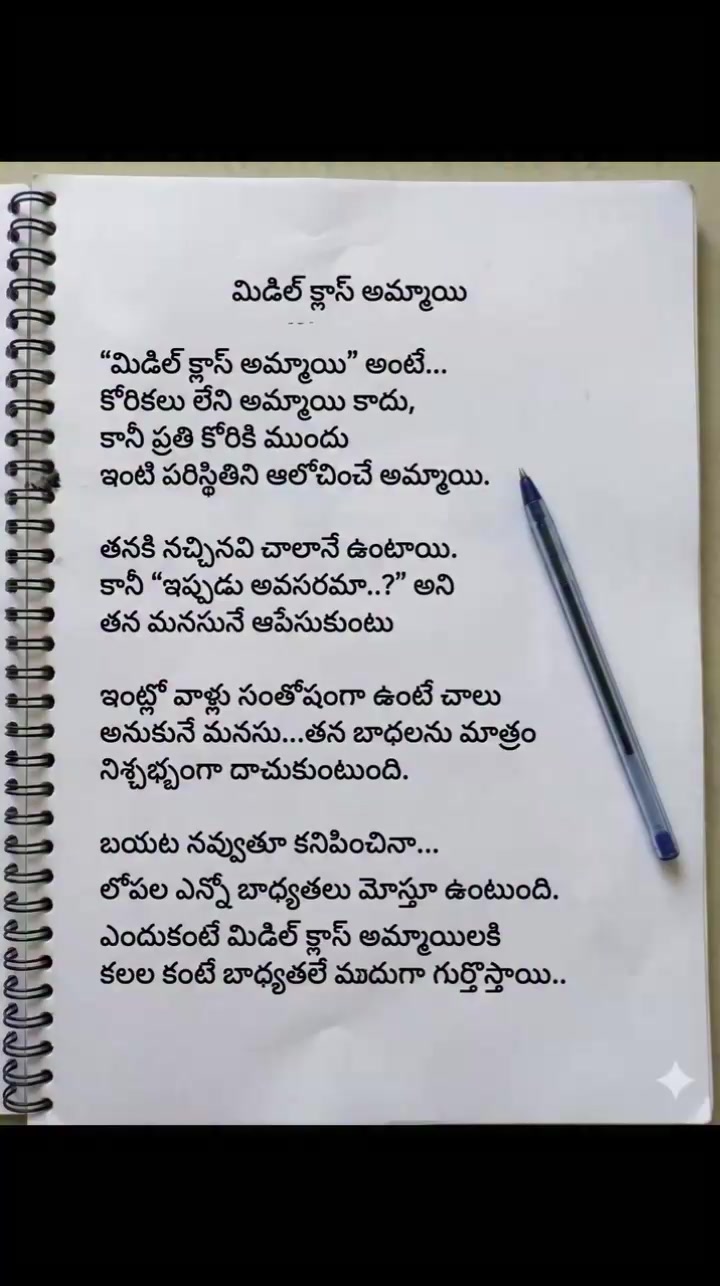 మిడిల్ క్లాస్ అమ్మాయి
“మిడిల్ క్లాస్ అమ్మాయి” అంటే...
కోరికలు లేని అమ్మాయి కాదు,
కానీ ప్రతి కోరికి ముందు
ఇంటి పరిస్థితిని ఆలోచించే అమ్మాయి.
తనకి నచ్చినవి చాలానే ఉంటాయి.
కానీ “ఇప్పుడు అవసరమా..?” అని
తన మనసునే ఆపేసుకుంటు
ఇంట్లో వాళ్లు సంతోషంగా ఉంటే చాలు
అనుకునే మనసు...తన బాధలను మాత్రం
దాచుకుంటుంది.
బయట నవ్వుతూ కనిపించినా...
లోపల ఎన్నో బాధ్యతలు మోస్తూ ఉంటుంది.
ఎందుకంటే మిడిల్ క్లాస్ అమ్మాయిలకి
కలల కంటే బాధ్యతలే గుర్తొస్తాయి..